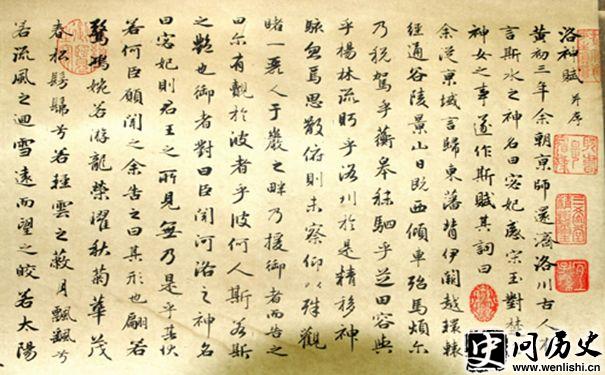 洛神賦 并序
黄初三年余朝京師還濟洛川古人有
言斯水之神名曰宓妃感宋玉對楚
神女之事遂作斯賦其詞曰
余從京域言歸東藩背伊闕越轘轅
經通谷陵景山日既西傾車殆馬煩尔
乃税駕乎蘅皋秣駟乎芝田容與
乎楊林流眄乎洛川於是精移神
駭忽焉思散俯則未察仰以殊觀
睹一麗人于巖之畔乃援御者而告之
曰尔有覿於彼者乎彼何人斯若斯
之艷也御者對曰臣聞河洛之神名
曰宓妃則君王之所見無乃是乎其狀
若何臣願聞之余告之曰其形也翩若
驚鴻婉若游龍榮曜秋菊華茂
春松髣髴兮若輕雲之蔽月飄飄兮
若流風之迴雪遠而望之皎若太陽
史问历史
www.wenlishi.cn